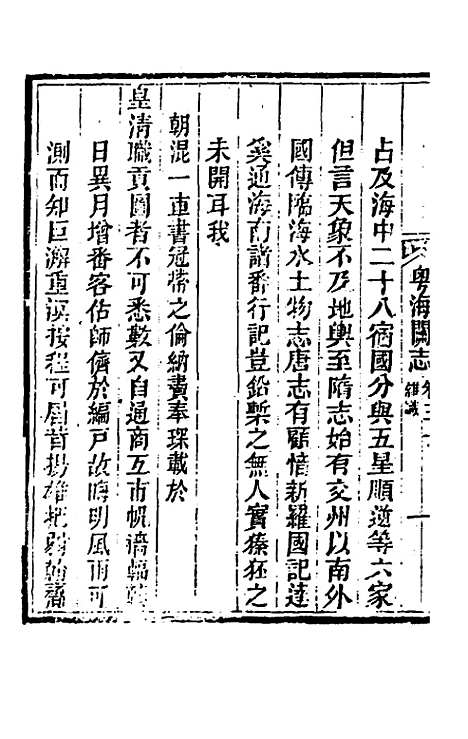 粵海關志 卷三十 雜識 一
占及海中二十八宿國分與五星順逆等六家
但言天象不及地輿至隋志始有交州以南外
國傳臨海水土物志唐志有顧愔新羅國記達
奚通海南諸番行記豈鉛槧之無人實獉狉之
未開耳我
朝混一車書冠帶之倫納賮奉琛載於
皇清職貢圖者不可悉數又自通商互市帆檣輻
日異月增番客估師儕於編戶故晦明風雨可
測而知巨澥重溟按程可屆昔揚雄把弱翰齎